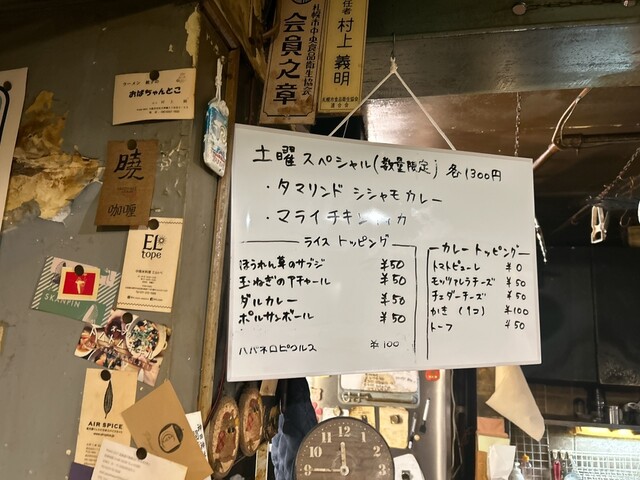 札幌市中央食品衛生協会
会員之章
任者
村上義明
ラーメン
おばちゃんとこ
曉
咖喱
EL
tope
SKANFIN
AIR SPICE
土曜スペシャル(数量限定) 各1300円
・タマリンド シシャモカレー
・マライチキン
ライス トッピング
ほうれん草のサブジ ¥50
玉ねぎのアチャール ¥50
ダルカレー ¥50
ポルサンボール ¥50
ハバネロピクルス ¥100
カレートッピング
トマトピューレ ¥0
モッツァレラチーズ ¥50
チェダーチーズ ¥50
かき (1コ) ¥100
トーフ ¥50
11 12 1
10 2
9 3
8